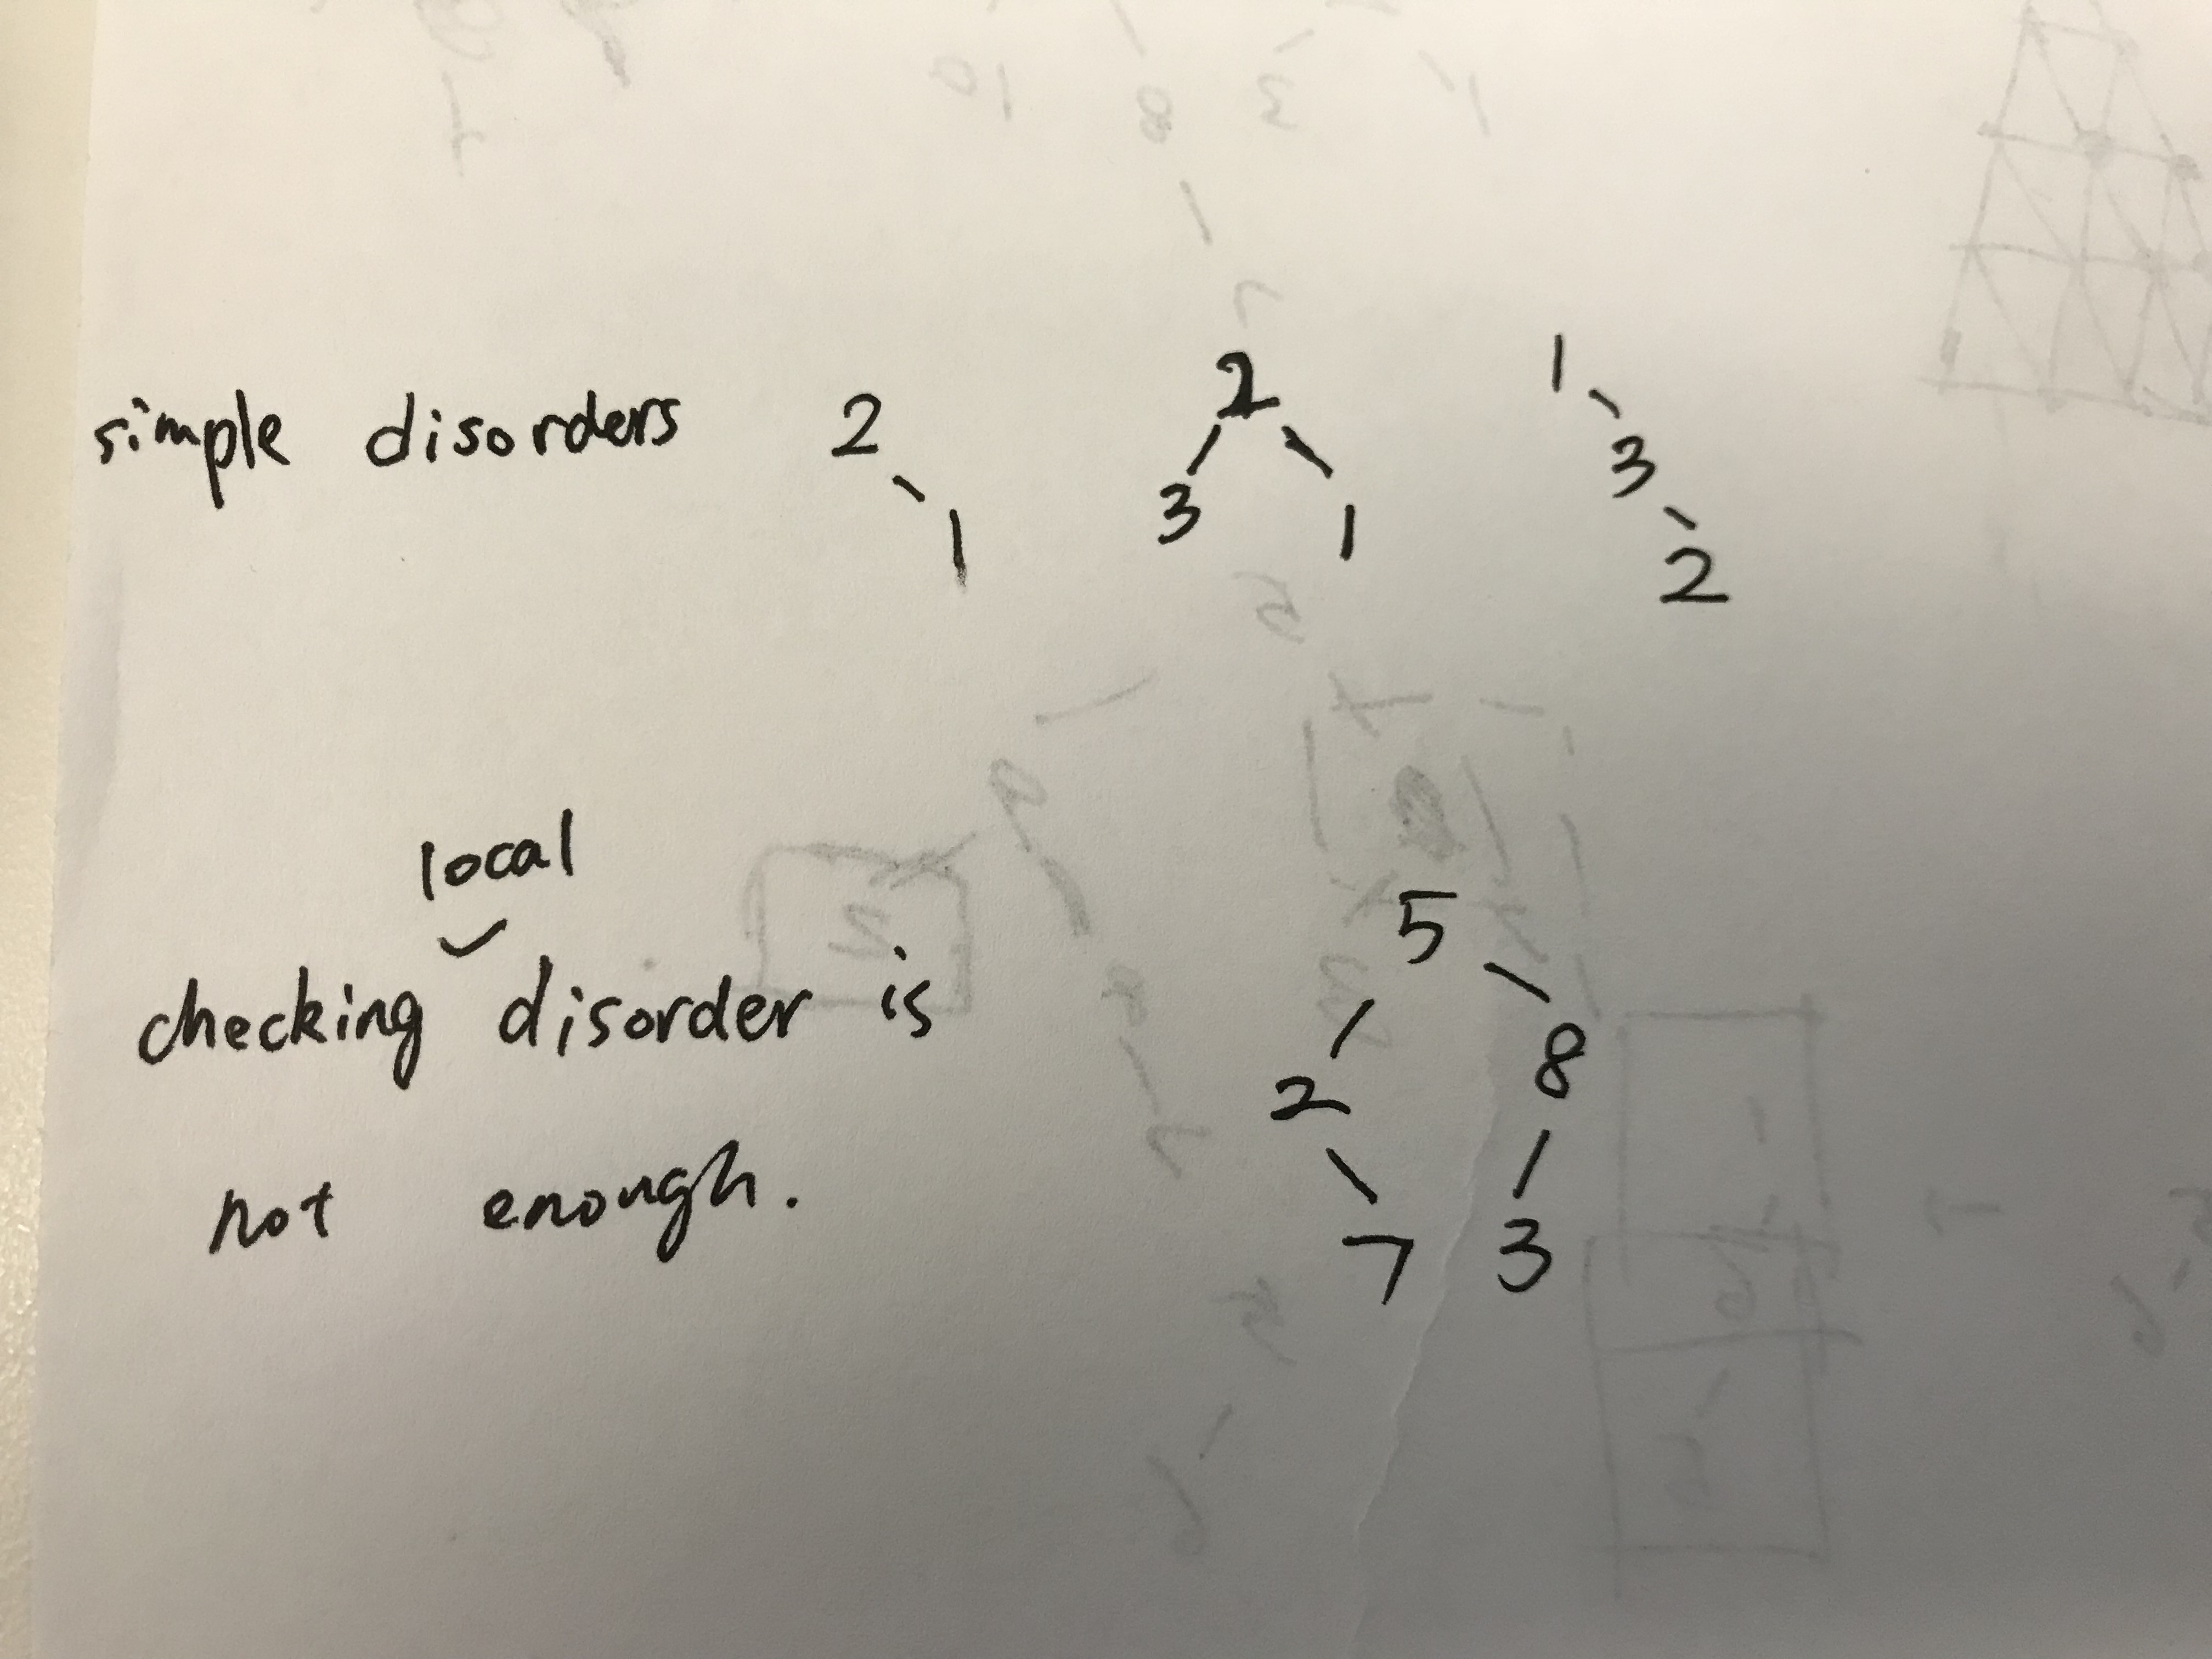 simple disorders 2 2 1
3 1 3
1 2
local
checking disorder is 5
2 8
not enough. 7 3